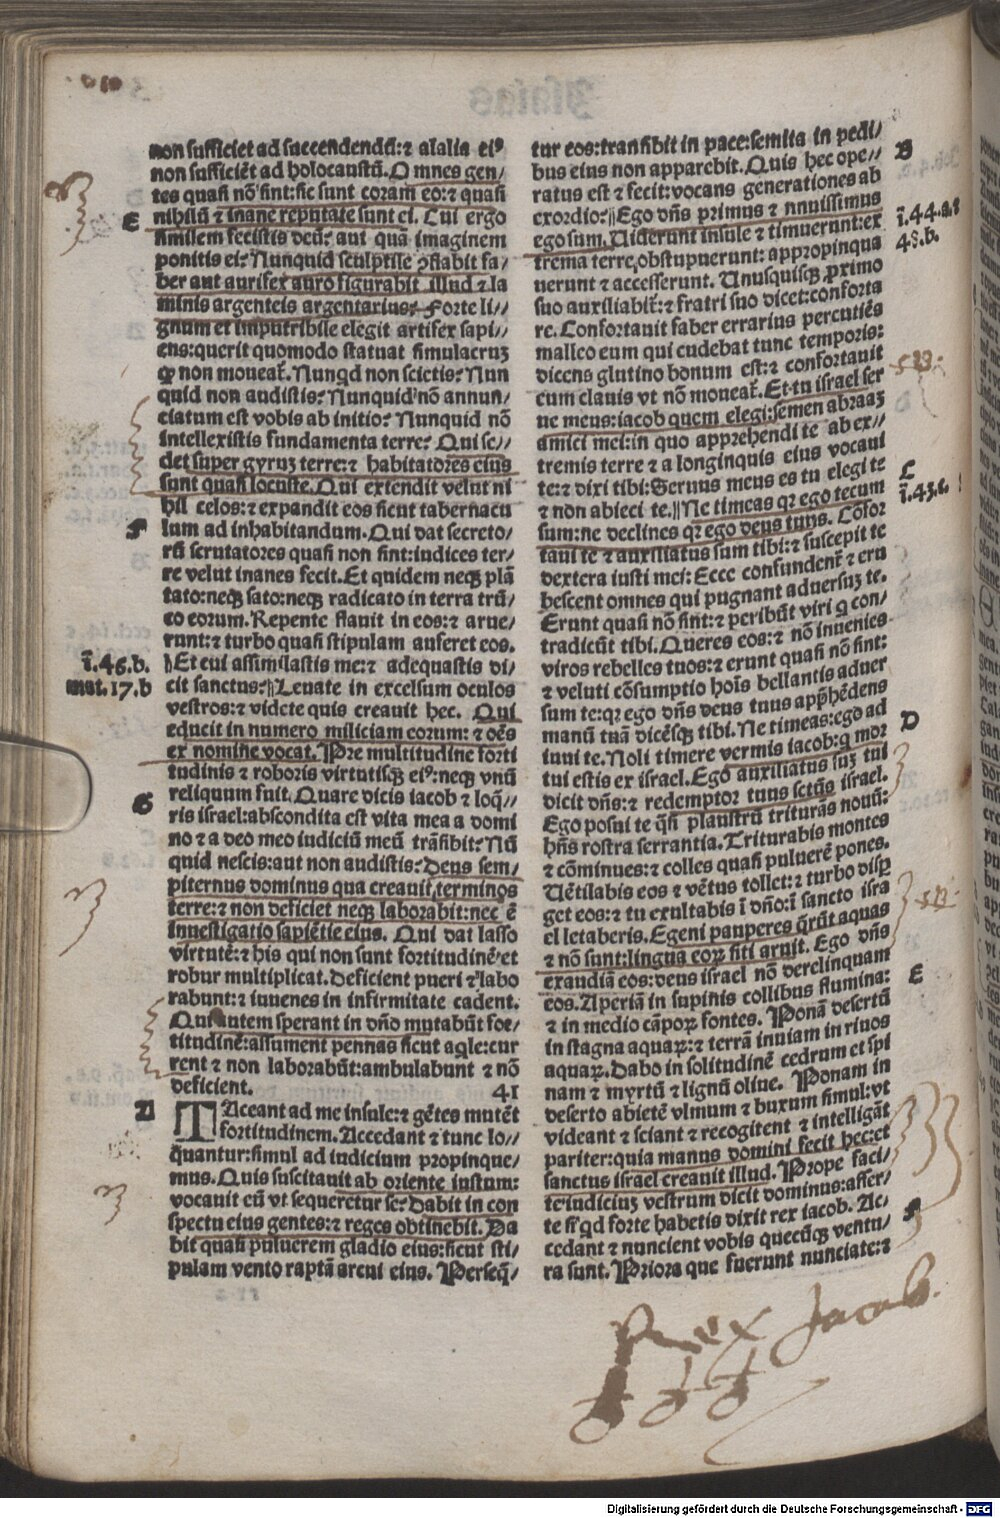 non sufficiet ad succendendū: ⁊ alalia eiꝰ
non sufficiēt ad holocaustū. Omnes gen/
tes quasi nō sint: sic sunt coram eo: ⁊ quasi
E
nihilū ⁊ inane reputate sunt ei. Cui ergo
similem fecistis deū: aut quā imaginem
ponitis ei? Nunquid sculptile ꝯflabit fa/
ber aut aurifex auro figurabit illud ⁊ la
minis argenteis argentarius? Forte li//
gnum et imputribile elegit artifex sapi//
ens: querit quomodo statuat simulacruꝫ
ꝙ non moueat̄. Nunqd non scietis? Nun
quid non audistis? Nunquid nō annun/
ciatum est vobis ab initio? Nunquid nō
intellexistis fundamenta terre? Qui se//
det super gyruꝫ terre: ⁊ habitatores eius
sunt quasi locuste. Qui extendit velut ni
hil celos: ⁊ expandit eos sicut tabernacu
F
lum ad inhabitandum. Qui dat secreto/
rū scrutatores quasi non sint: iudices ter/
re velut inanes fecit. Et quidem neqꝫ plā
tato: neqꝫ sato: neqꝫ radicato in terra trū/
co eorum. Repente flauit in eos: ⁊ arue/
runt: ⁊ turbo quasi stipulam auferet eos.
ī. 46. b.
Et cui assimilastis me: ⁊ adequastis di/
mat. 17. b
cit sanctus? Leuate in excelsum oculos
vestros: ⁊ videte quis creauit hec. Qui
educit in numero miliciam eorum: ⁊ oēs
ex nomine vocat. Pre multitudine forti
tudinis ⁊ roboris virtutisqꝫ eiꝰ: neqꝫ vnū
G
reliquum fuit. Quare dicis iacob ⁊ loq̄//
ris israel: abscondita est vita mea a domi
no ⁊ a deo meo iudiciū meū trāsibit? Nū
quid nescis: aut non audistis? Deus sem/
piternus dominus qua creauit terminos
terre: ⁊ non deficiet neqꝫ laborabit: nec ē
inuestigatio sapiētie eius. Qui dat lasso
virtutē: ⁊ his qui non sunt fortitudinē et
robur multiplicat. Deficient pueri ⁊ labo
rabunt: ⁊ iuuenes in infirmitate cadent.
Qui autem sperant in dño mutabūt for/
titudinē: assument pennas sicut aqle: cur
rent ⁊ non laborabūt: ambulabunt ⁊ nō
deficient. 41
A
TAceant ad me insule: ⁊ gētes mutēt
fortitudinem. Accedant ⁊ tunc lo//
quantur: simul ad iudicium propinque/
mus. Quis suscitauit ab oriente iustum:
vocauit eū vt sequeretur se? Dabit in con
spectu eius gentes: ⁊ reges obtinebit. Da
bit quasi puluerem gladio eius: sicut sti/
pulam vento raptā arcui eius. Perseq̄/
tur eos: transibit in pace: semita in pedi/
B
bus eius non apparebit. Quis hec ope//
ratus est ⁊ fecit: vocans generationes ab
exordio? Ego dñs primus ⁊ nnuissimus
ī. 44. a. ⁊
ego sum. Uiderunt insule ⁊ timuerunt: ex
48. b.
trema terre obstupuerunt: appropinqua
uerunt ⁊ accesserunt. Unusquisqꝫ proximo
suo auxiliabit̄: ⁊ fratri suo dicet: conforta
re. Confortauit faber errarius percutiēs
malleo eum qui cudebat tunc temporis:
dicens glutino bonum est: ⁊ confortauit
eum clauis vt nō moueat̄. Et tu israel ser
ue meus: iacob quem elegi: semen abraaꝫ
amici mei: in quo apprehendi te ab ex//
tremis terre ⁊ a longinquis eius vocaui
C
te: ⁊ dixi tibi: Seruus meus es tu elegi te
ī. 43. c.
⁊ non abieci te. Ne timeas qꝛ ego tecum
sum: ne declines qꝛ ego deus tuus. Cōfor
taui te ⁊ auxiliatus sum tibi: ⁊ suscepit te
dextera iusti mei: Ecce confundent̄ ⁊ eru
bescent omnes qui pugnant aduersuꝫ te.
Erunt quasi nō sint: ⁊ peribūt viri q con/
tradicūt tibi. Queres eos: ⁊ nō inuenies
viros rebelles tuos: ⁊ erunt quasi nō sint:
⁊ veluti cōsumptio hoīs bellantis aduer
sum te: qꝛ ego dñs deus tuus appꝛehēdens
D
manū tuā dicēsqꝫ tibi. Ne timeas: ego ad
iuui te. Noli timere vermis iacob: q mor
tui estis ex israel. Ego auxiliatus suꝫ tui
dicit dñs: ⁊ redemptor tuus sctūs israel.
Ego posui te q̄si plaustrū triturās nouū:
hñs rostra serrantia. Triturabis montes
⁊ cōminues: ⁊ colles quasi puluerē pones.
Uētilabis eos ⁊ vētus tollet: ⁊ turbo disꝑ
get eos: ⁊ tu exultabis ī dño: ī sancto isra
el letaberis. Egeni ⁊ pauperes q̄rūt aquas
⁊ nō sunt: lingua eoꝝ siti aruit. Ego dñs
E
exaudiā eos: deus israel nō derelinquam
eos. Aperiā in supinis collibus flumina:
⁊ in medio cāpoꝝ fontes. Ponā desertū
in stagna aquaꝝ: ⁊ terrā inuiam in riuos
aquaꝝ. Dabo in solitudinē cedrum et spi
nam ⁊ myrtū ⁊ lignū oliue. Ponam in
deserto abietē vlmum ⁊ buxum simul: vt
videant ⁊ sciant ⁊ recogitent ⁊ intelligāt
pariter: quia manus domini fecit hec: et
sanctus israel creauit illud. Prope faci/
te iudiciuꝫ vestrum dicit dominus: affer/
F
te si qd forte habetis dixit rex iacob. Ac/
cedant ⁊ nuncient vobis quecūqꝫ ventu/
ra sunt. Priora que fuerunt nunciate: ⁊
Rex Jacob.
Digitalisierung gefördert durch die Deutsche Forschungsgemeinschaft - DFG